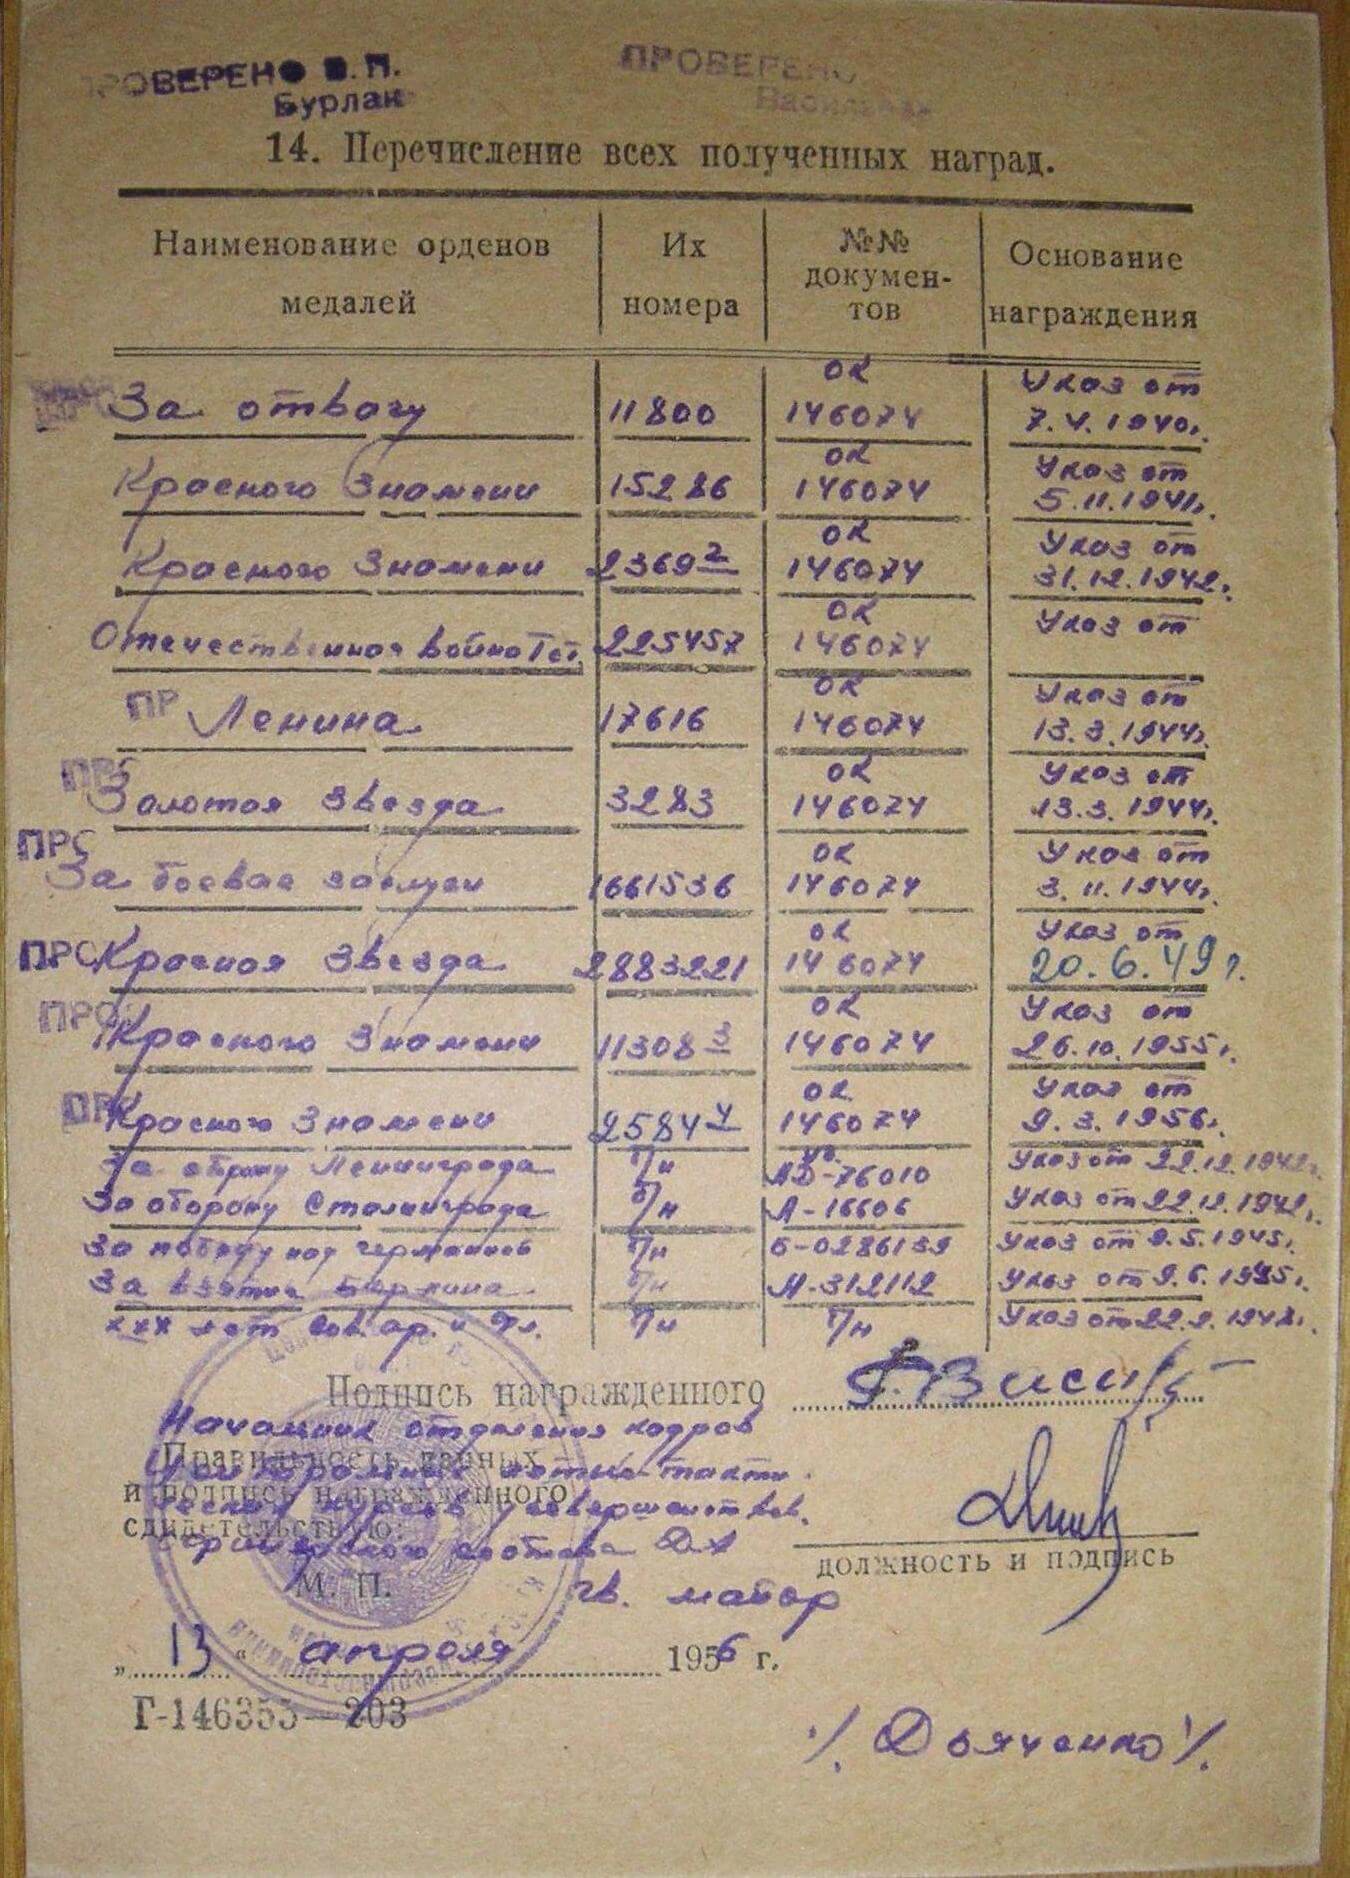 ПРОВЕРЕНО В. П. ПРОВЕРЕНО
Бурлак
14. Перечисление всех полученных наград.
Наименование орденов медалей Их номера №№ докумен- тов Основание награждения
За отвагу 11800 ОК 146074 Указ от 7.V.1940г.
Красного Знамени 15286 ОК 146074 Указ от 5.11.1941г.
Красного Знамени 2369 2 ОК 146074 Указ от 31.12.1942г.
Отечественная война Iст. 225457 ОК 146074 Указ от
ПР Ленина 17616 ОК 146074 Указ от 13.3.1944г.
ПРС Золотая звезда 3283 ОК 146074 Указ от 13.3.1944г.
ПРС За боевые заслуги 1661536 ОК 146074 Указ от 3.11.1944г.
ПРС Красная Звезда 2883221 ОК 146074 Указ от 20.6.49г.
ПРО Красного Знамени 11308 3 ОК 146074 Указ от 26.10.1955г.
Красного Знамени 2584 4 ОК 146074 Указ от 9.3.1956г.
За оборону Ленинграда б/н АД-76010 Указ от 22.12.1942г.
За оборону Сталинграда б/н А-16606 Указ от 22.12.1942г.
За победу над германией б/н Б-0286139 Указ от 9.5.1945г.
За взятие Берлина б/н А-312112 Указ от 9.6.1945г.
ххх лет Сов. ар. и Фл. б/н б/н Указ от 22.2.1948г.
Подпись награжденного
Начальник отделения кадров
Правильность данных
летно-такти
и подпись награжденного
ческих курсов усовершенствов.
свидетельствую:
офицерского состава ДА
должность и подпись
М. П. гв. майор
„13“ апреля 1956 г.
Г-146355—203
/Дьяченко/.